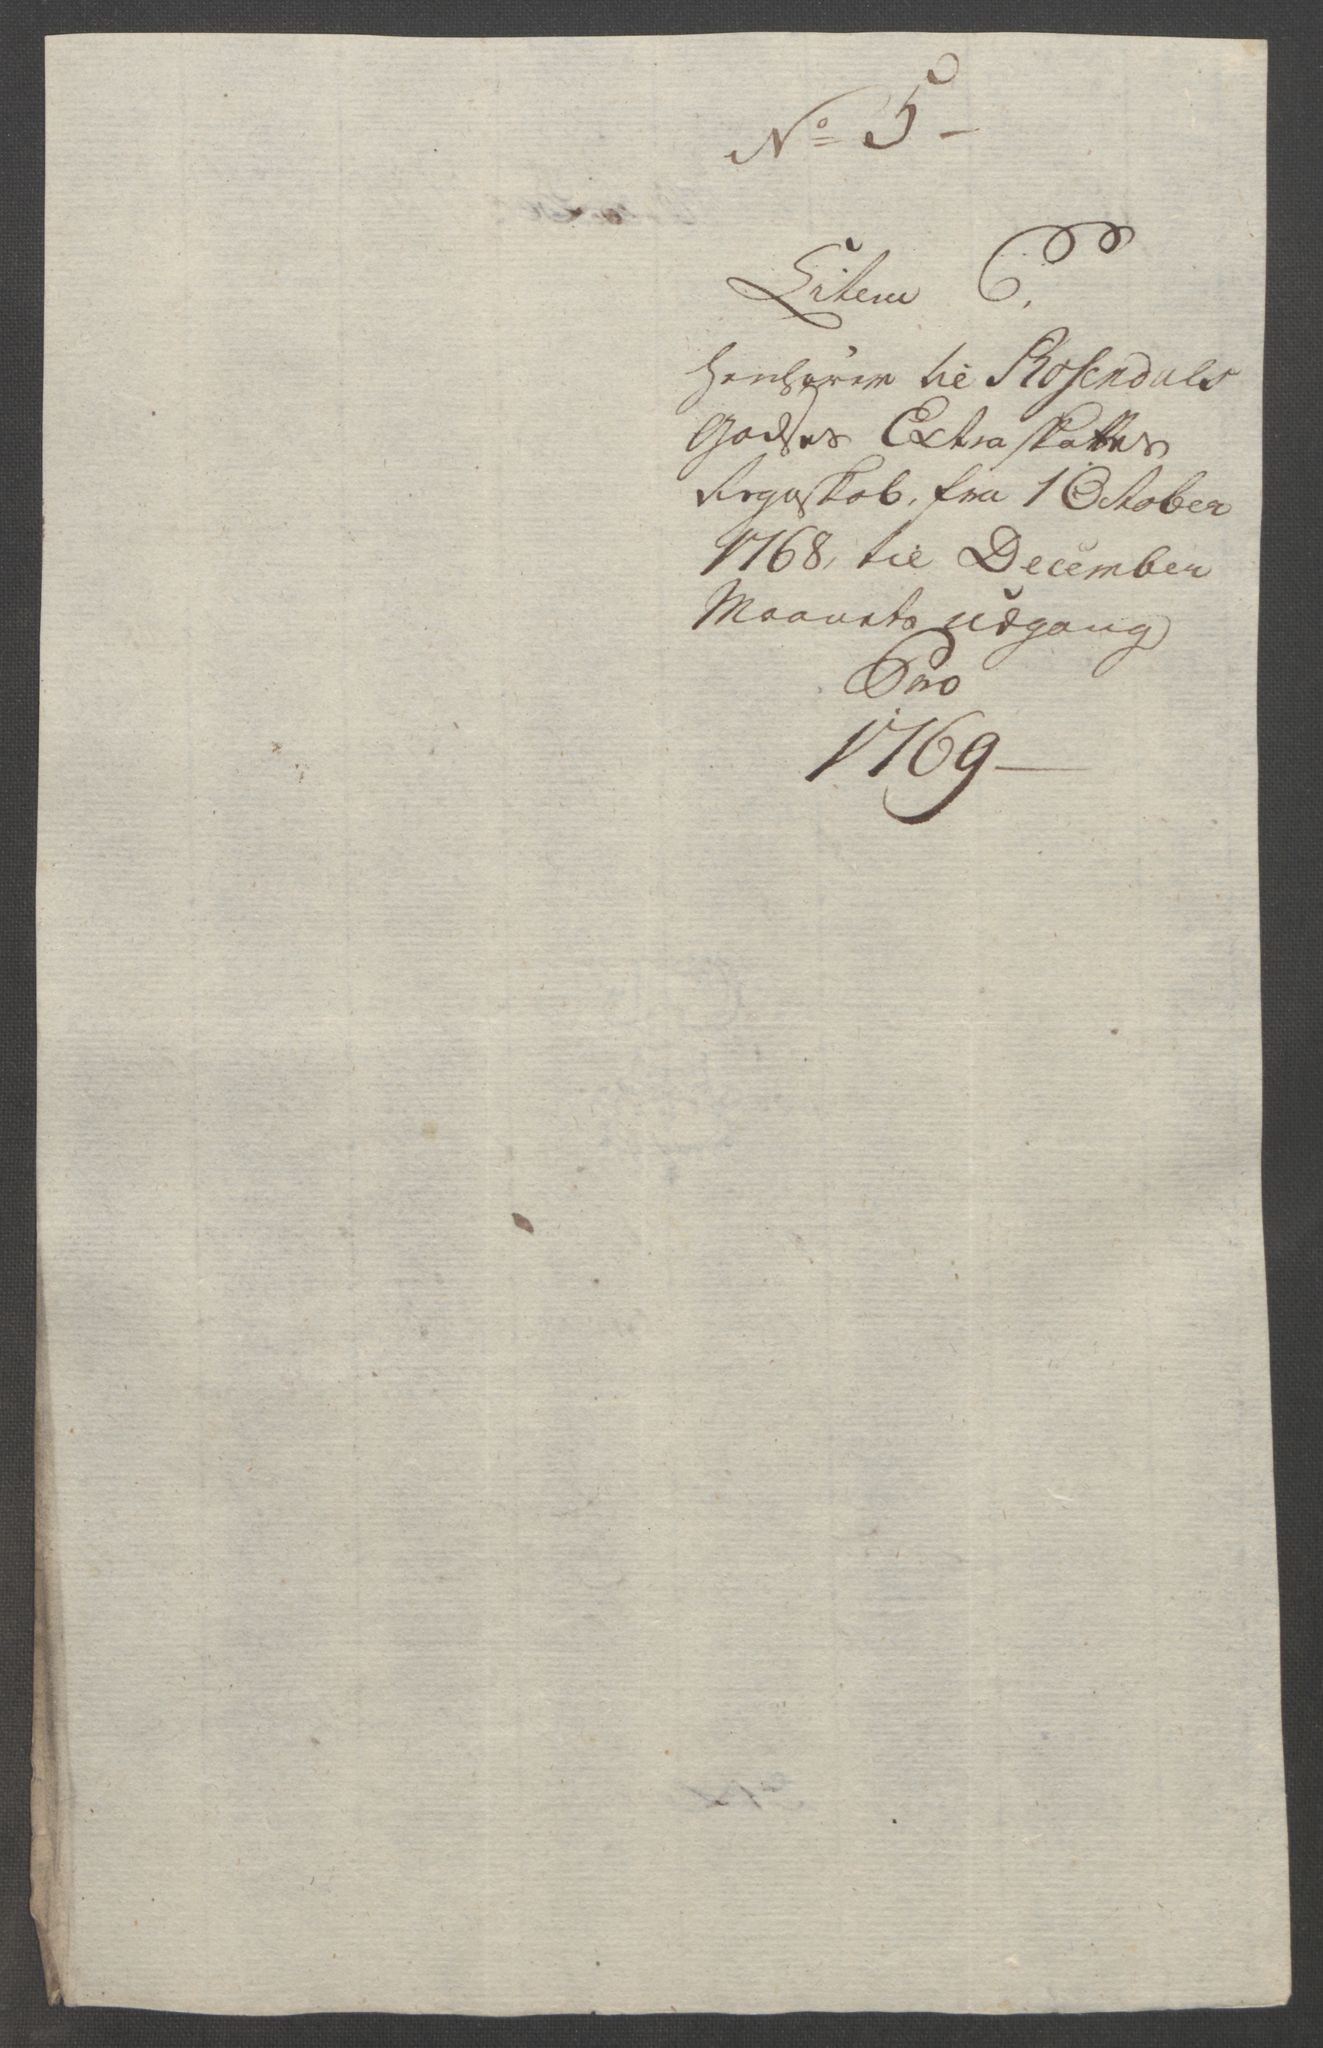 No 5 -
Litera C.
henhører til Rosendals
Godses Extraskattes
Regnskab, fra 1 October
1768, til December
Maaneds udgang
Pro
1769 -